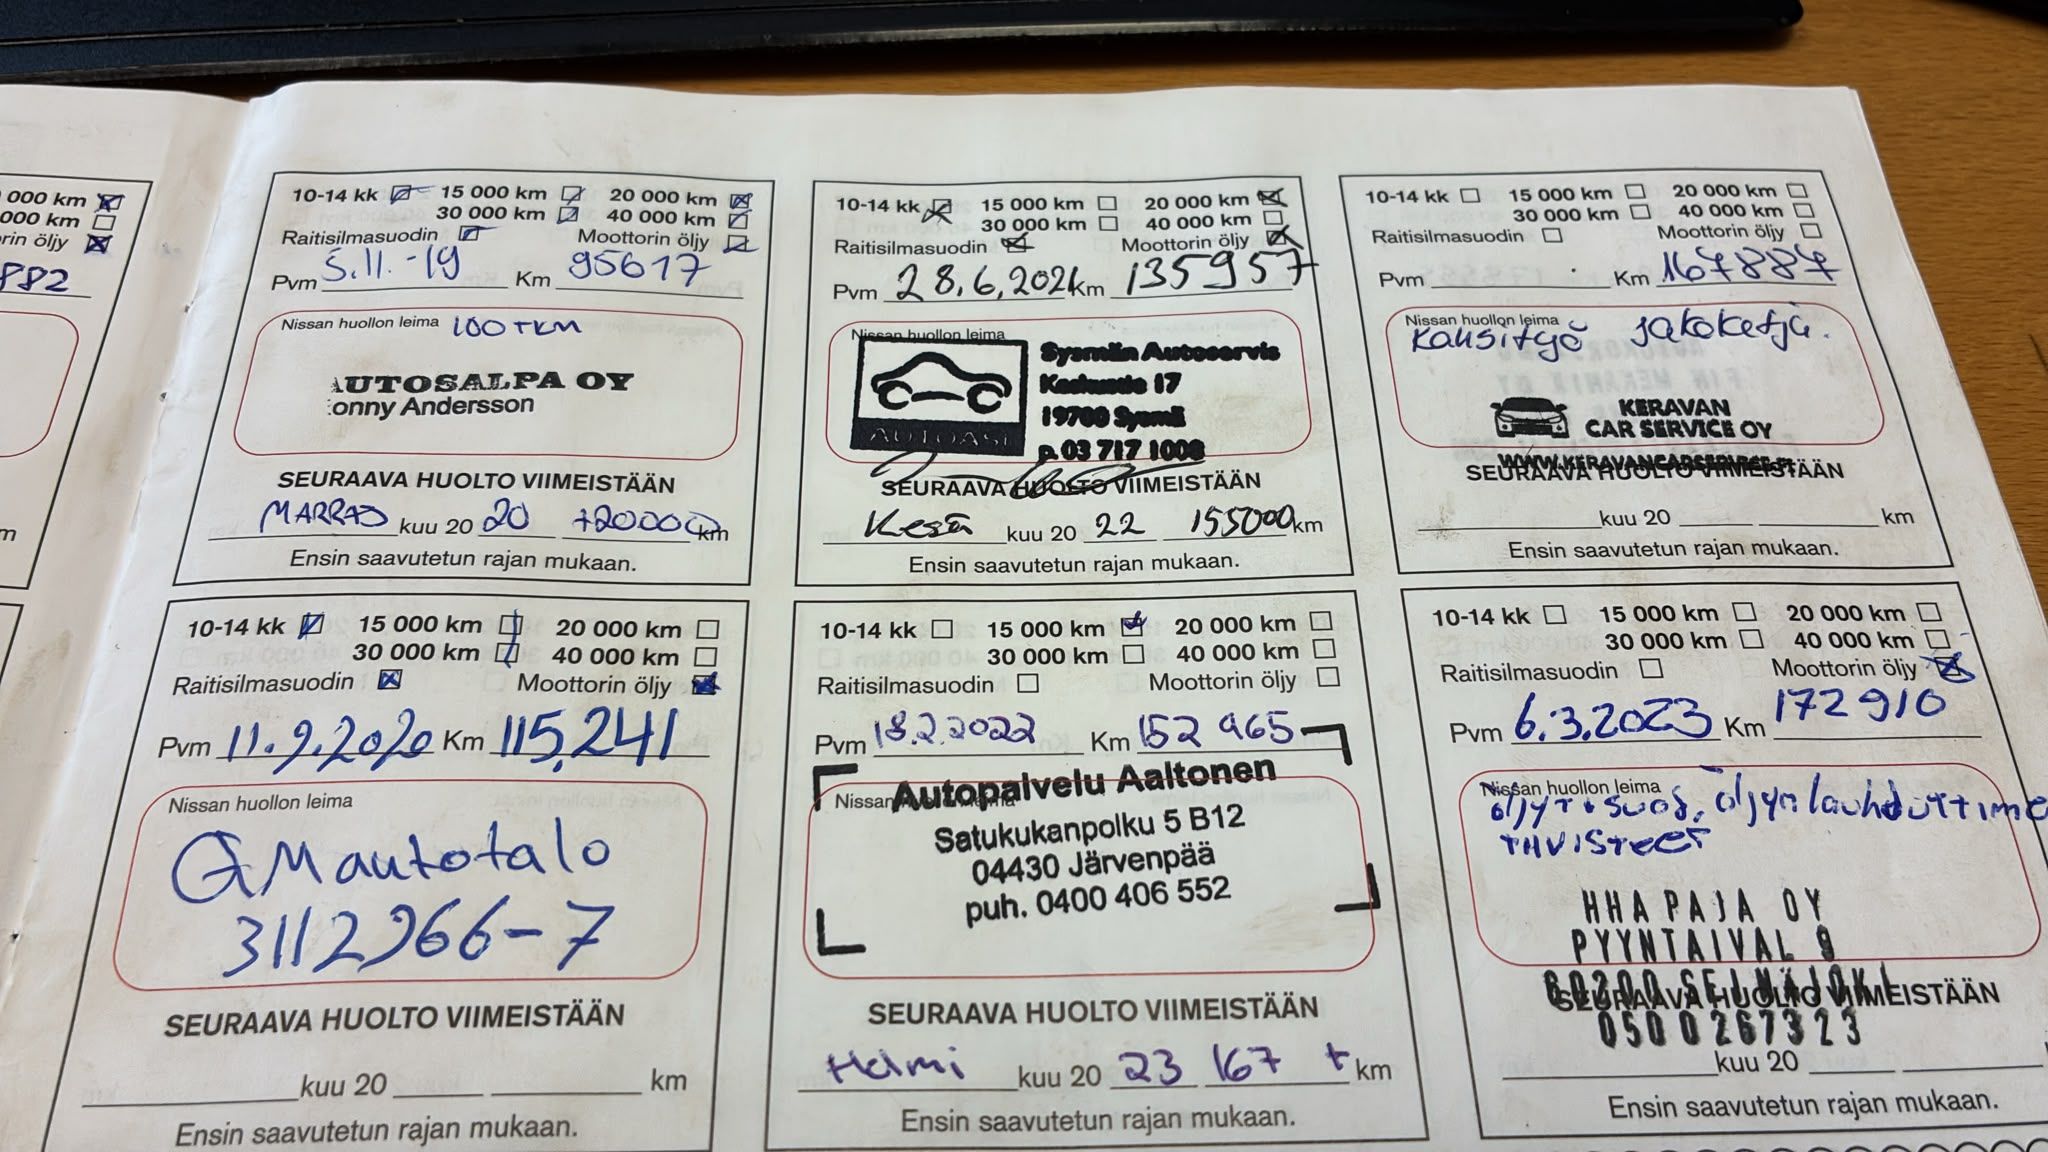 000 km
000 km
rin öljy
882
10-14 kk 15 000 km 20 000 km
30 000 km 40 000 km
Raitisilmasuodin Moottorin öljy
Pvm 5.11.-19 Km 95617
Nissan huollon leima 100 TKM
AUTOSALPA OY
onny Andersson
SEURAAVA HUOLTO VIIMEISTÄÄN
MARRAS kuu 20 20 +20000 km
Ensin saavutetun rajan mukaan.
10-14 kk 15 000 km 20 000 km
30 000 km 40 000 km
Raitisilmasuodin Moottorin öljy
Pvm 28.6.2021 Km 135957
Nissan huollon leima
AUTOASI
Sysmän Autoservis
Keskustie 17
19700 Sysmä
p. 03 717 1008
SEURAAVA HUOLTO VIIMEISTÄÄN
Kesä kuu 20 22 155000 km
Ensin saavutetun rajan mukaan.
10-14 kk 15 000 km 20 000 km
30 000 km 40 000 km
Raitisilmasuodin Moottorin öljy
Pvm Km 167887
Nissan huollon leima
Kansityö jakoketju.
KERAVAN
CAR SERVICE OY
WWW.KERAVANCARSERVICE.FI
SEURAAVA HUOLTO VIIMEISTÄÄN
kuu 20 km
Ensin saavutetun rajan mukaan.
10-14 kk 15 000 km 20 000 km
30 000 km 40 000 km
Raitisilmasuodin Moottorin öljy
Pvm 11.9.2020 Km 115,241
Nissan huollon leima
GM autotalo
3112966-7
SEURAAVA HUOLTO VIIMEISTÄÄN
kuu 20 km
Ensin saavutetun rajan mukaan.
10-14 kk 15 000 km 20 000 km
30 000 km 40 000 km
Raitisilmasuodin Moottorin öljy
Pvm 18.2.2022 Km 152 965
Nissan huollon leima
Autopalvelu Aaltonen
Satukukanpolku 5 B12
04430 Järvenpää
puh. 0400 406 552
SEURAAVA HUOLTO VIIMEISTÄÄN
Helmi kuu 20 23 167 t km
Ensin saavutetun rajan mukaan.
10-14 kk 15 000 km 20 000 km
30 000 km 40 000 km
Raitisilmasuodin Moottorin öljy
Pvm 6.3.2023 Km 172910
Nissan huollon leima
öljyt+suod, öljynlauhduttime
tiivisteet
HHA PAJA OY
PYYNTAIVAL 9
60200 SEINÄJOKI
SEURAAVA HUOLTO VIIMEISTÄÄN
0500267323
kuu 20
Ensin saavutetun rajan mukaan.